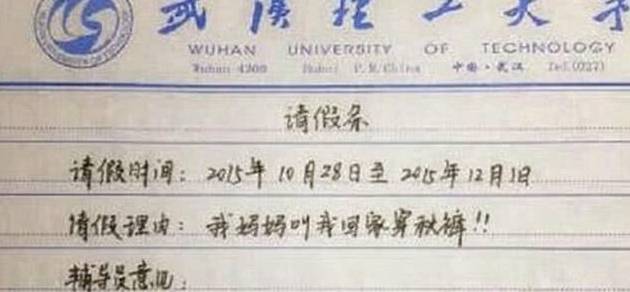 武漢理工大学
WUHAN UNIVERSITY OF TECHNOLOGY
Wuhan 4300 Hubei P.R.China 中国·武汉 Tel.(027)
请假条
请假时间：2015年10月28日至2015年12月1日
请假理由：我妈妈叫我回家穿秋裤!!
辅导员意见：